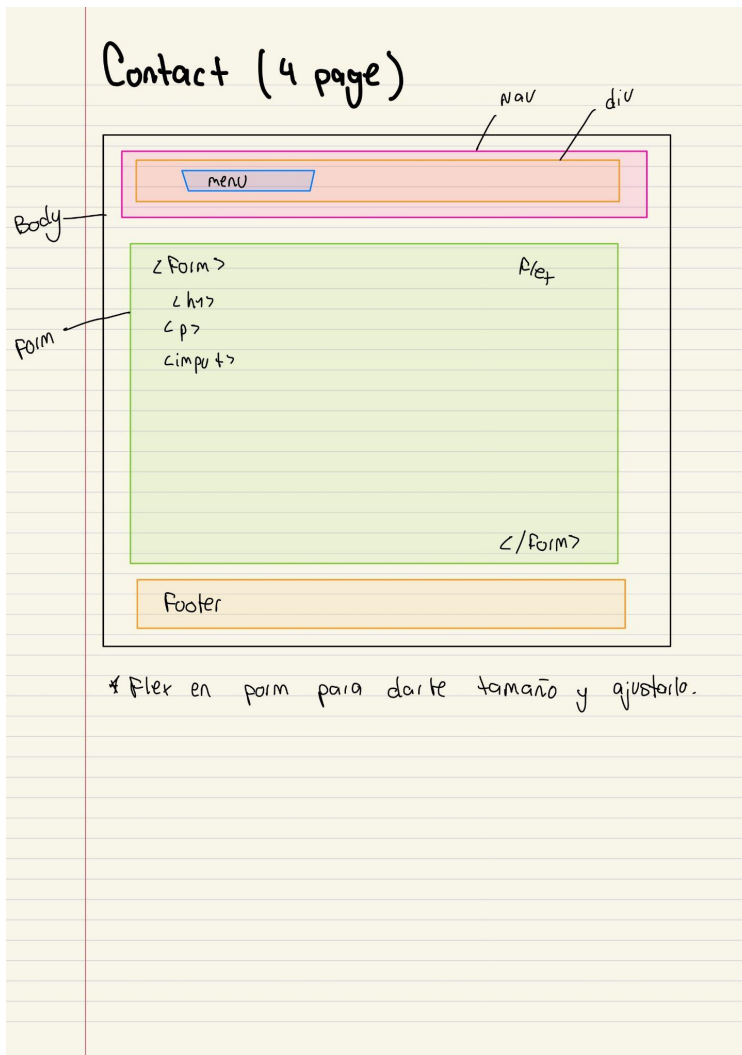 Contact (4 page)
Nav
div
menu
Body
<Form>
Flex
<h1>
<p>
<imput>
Form
</Form>
Footer
* Flex en porm para darte tamaño y ajustarlo.